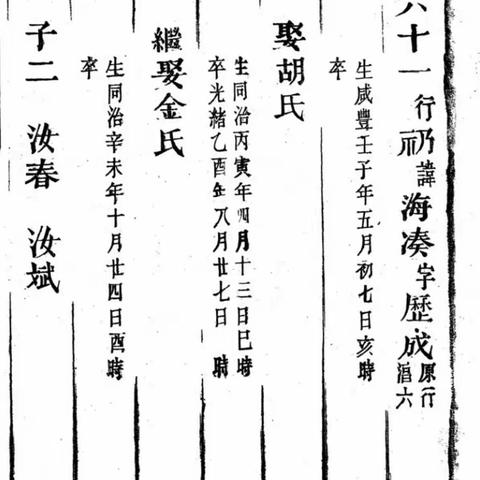 十一 行礽 諱海湊 字歷成 原行
六
生咸豐壬子年五月初七日亥時
卒
娶胡氏
生同治丙寅年四月十三日巳時
卒光緒乙酉年八月廿七日 時
繼娶金氏
生同治辛未年十月廿四日酉時
卒
子二 汝春 汝斌